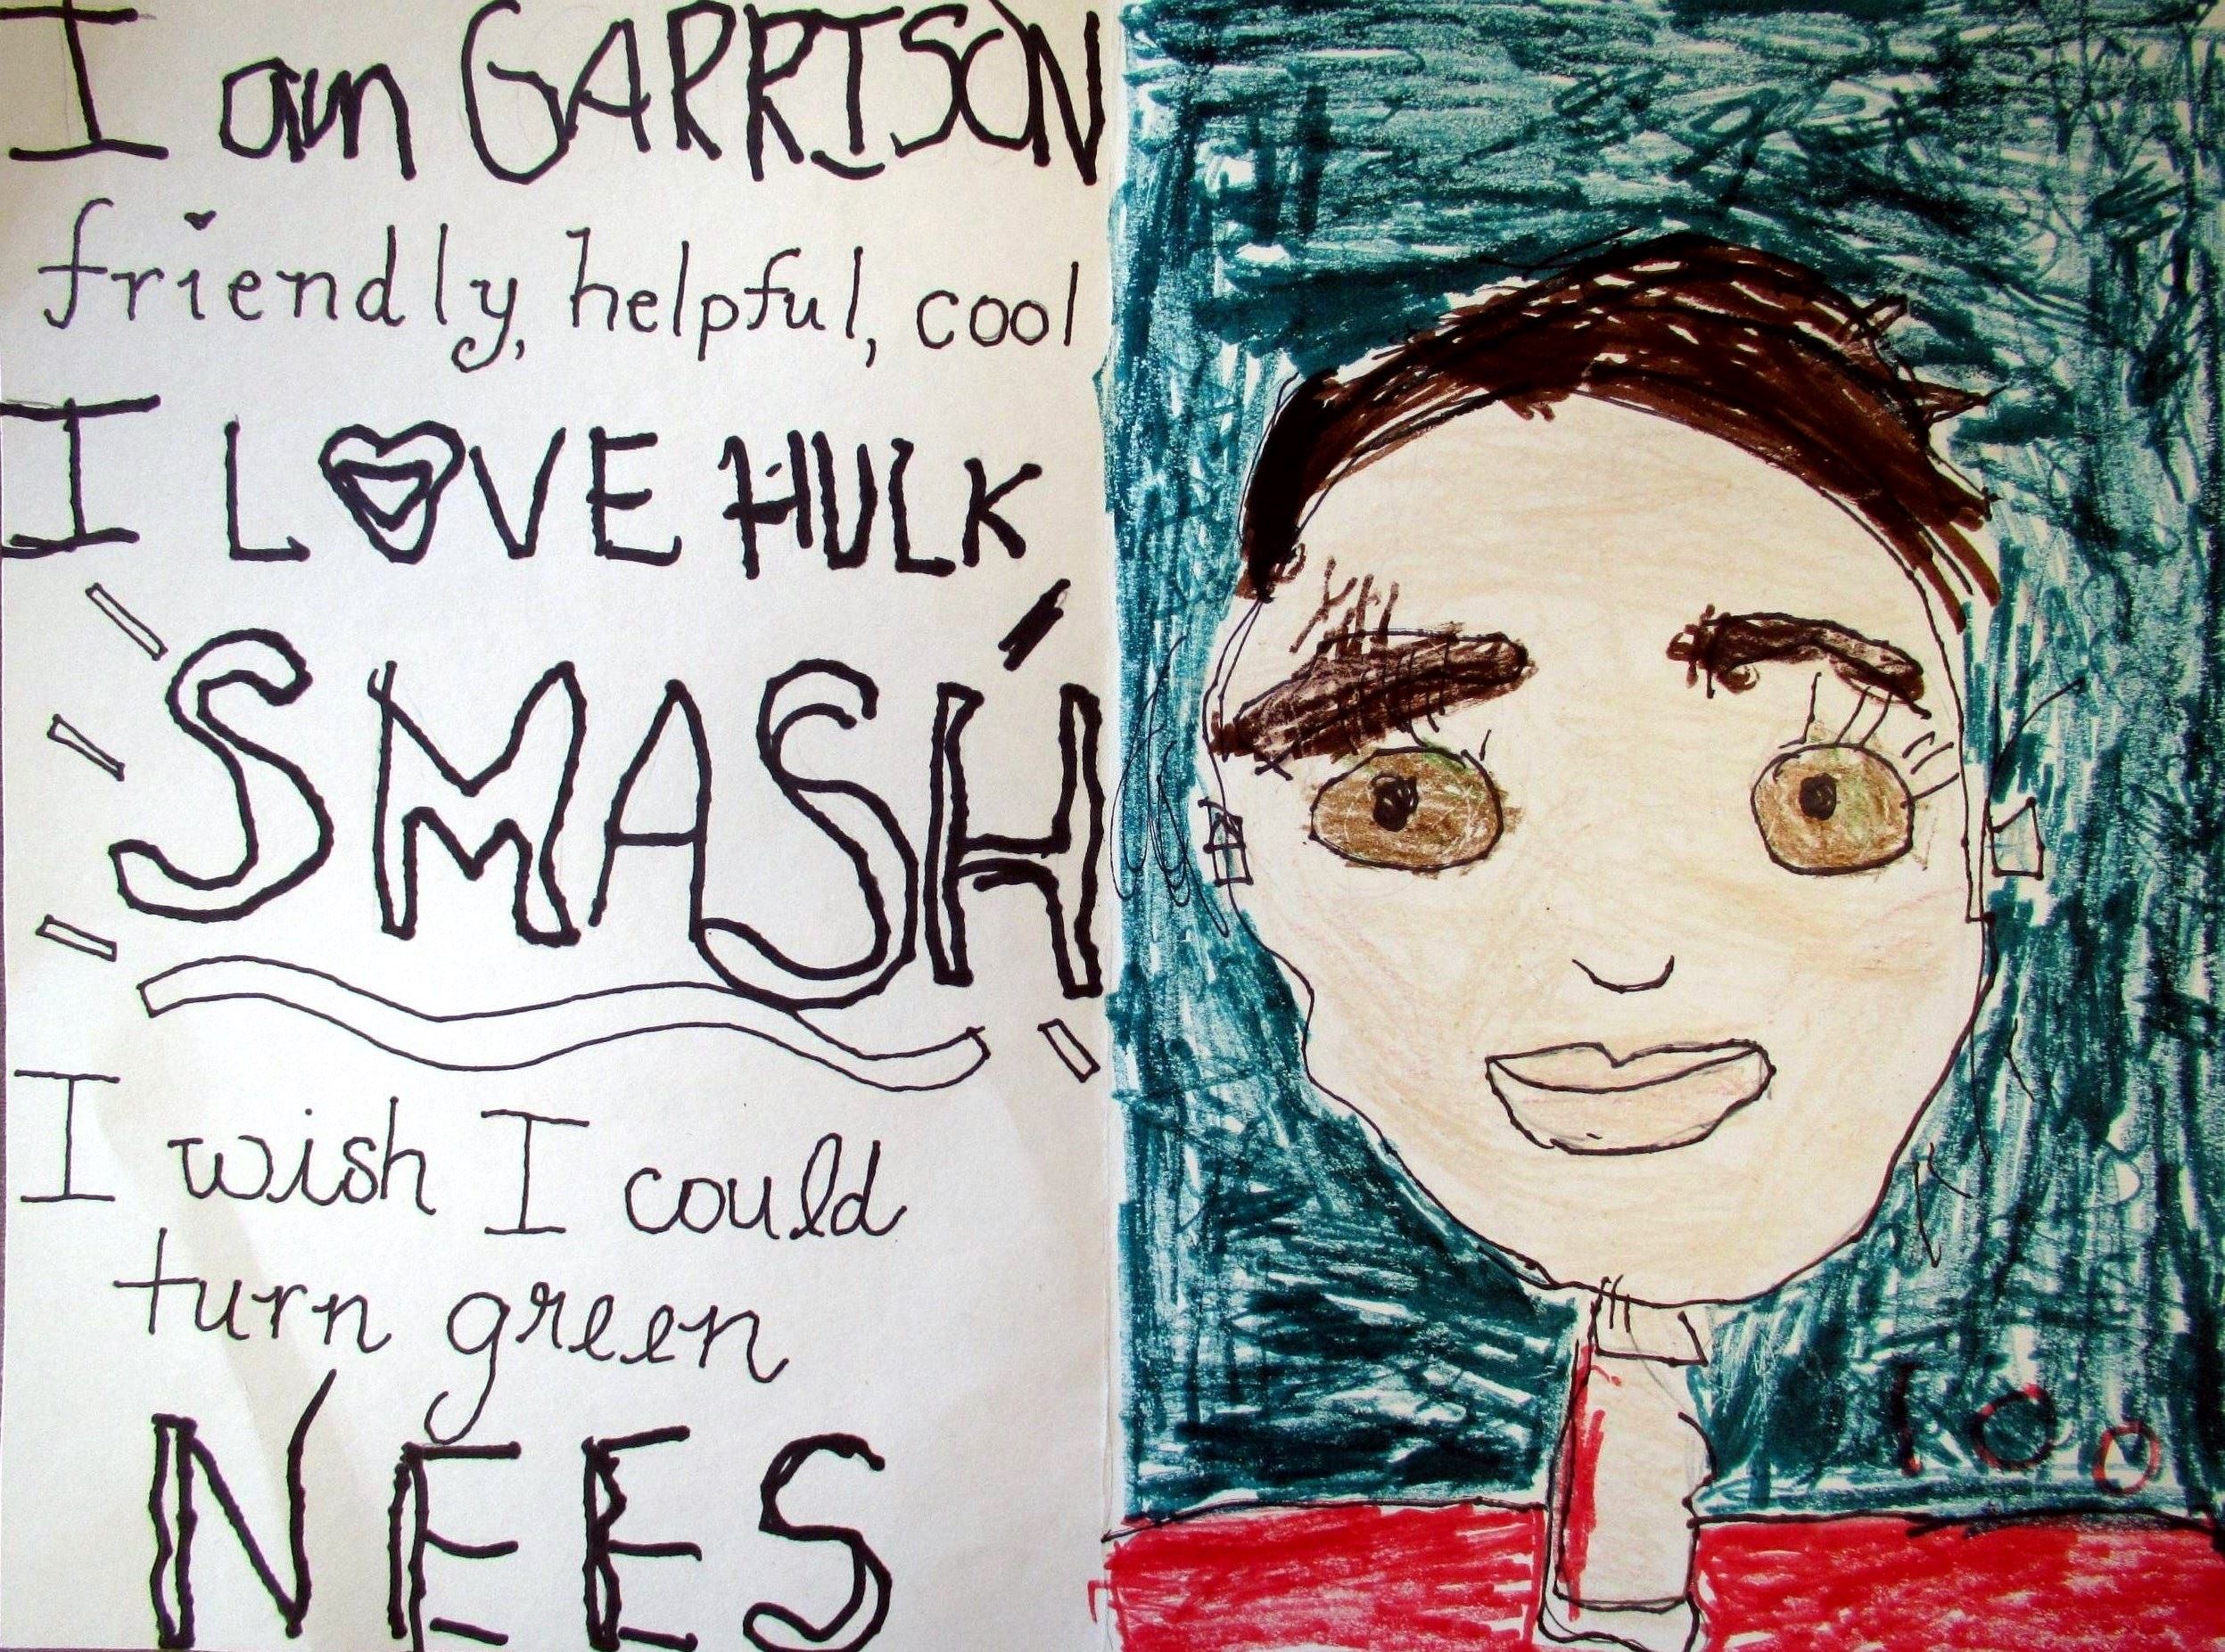 I am GARRISON
friendly, helpful, cool
I LOVE HULK
SMASH
I wish I could
turn green
NEES
100